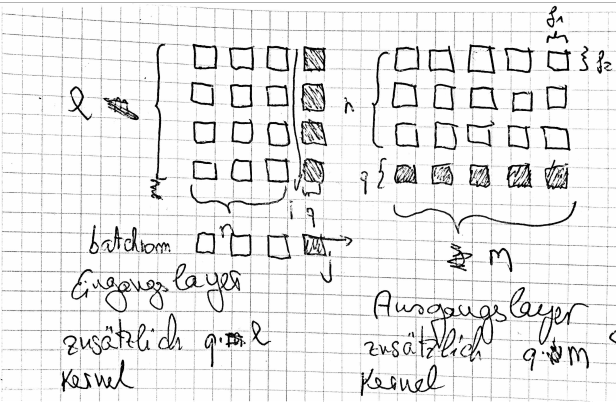 f₁
} f₂
l
n
q {
n
i
q
batchnorm
j
M
Eingangslayer
zusätzlich q · l
Kernel
Ausgangslayer
zusätzlich q · M
Kernel